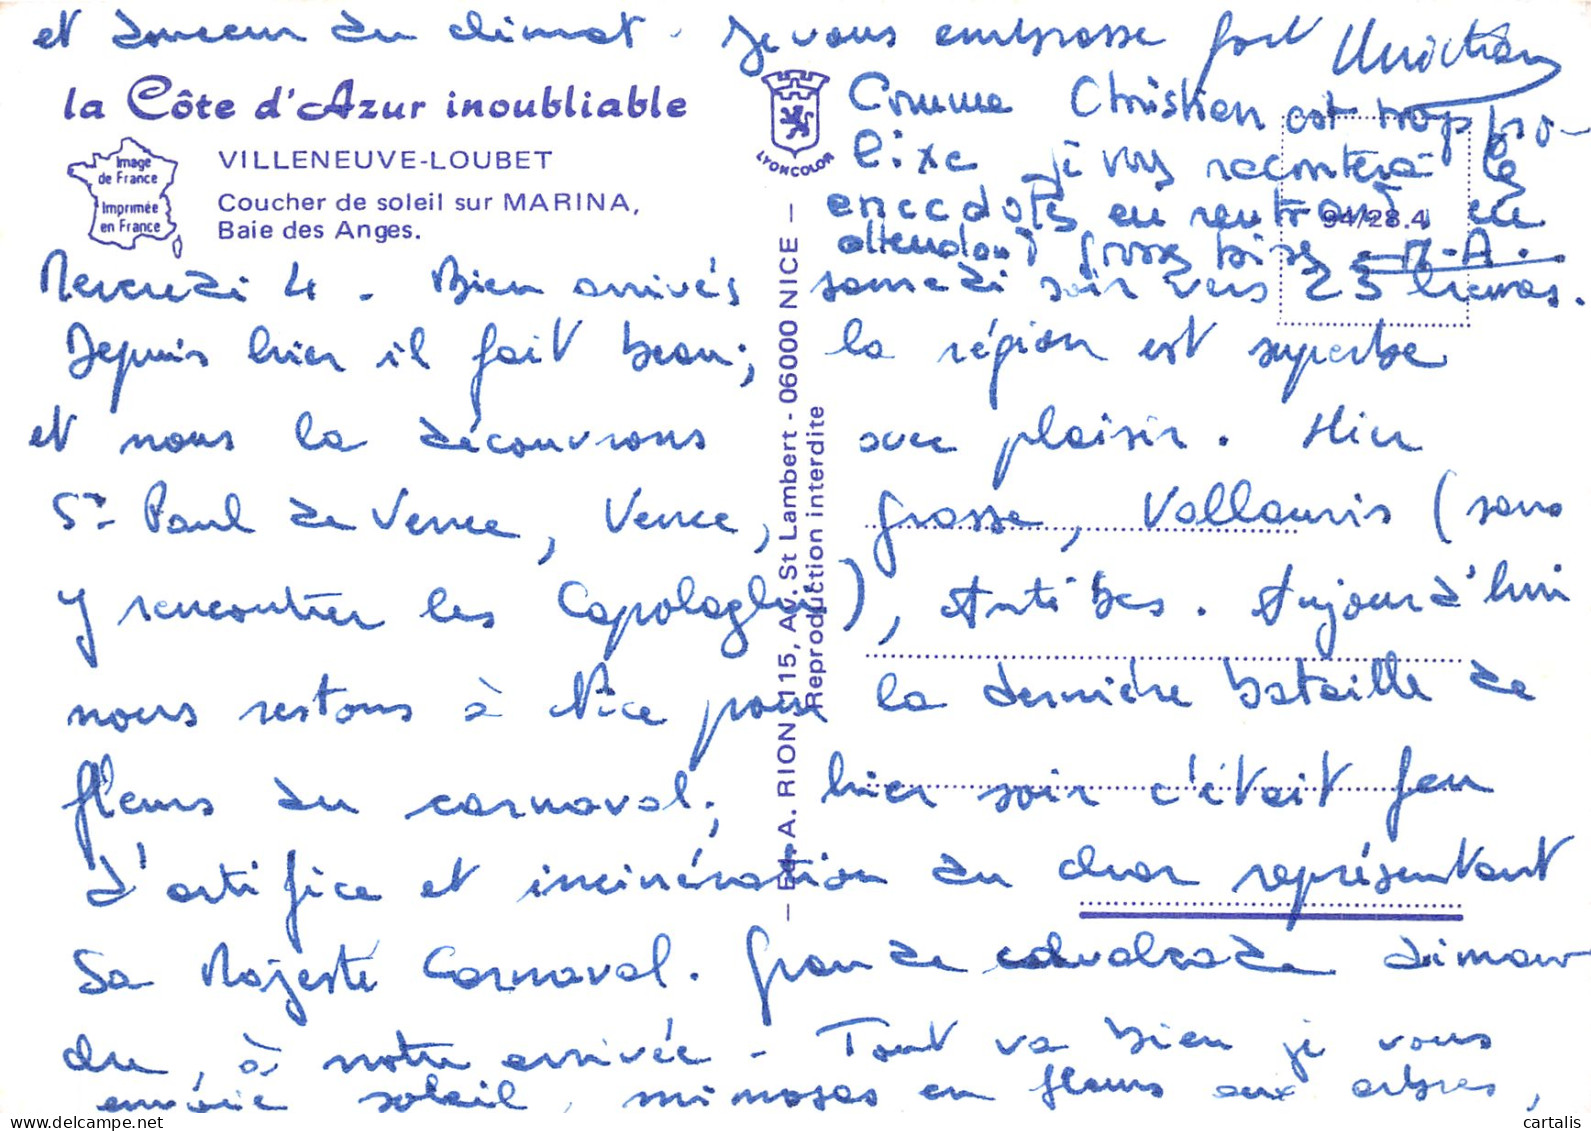 et douceur du climat. Je vous embrasse fort Christian
la Côte d'Azur inoubliable
Image
de France
Imprimée
en France
VILLENEUVE-LOUBET
Coucher de soleil sur MARINA,
Baie des Anges.
LYONCOLOR
Comme Christian est trop pro-
lixe je vous racontera les
anecdotes en rentrant, en
attendant grosses bises - M-A.
94/28.4
Mercredi 4 - Bien arrivés samedi soir vers 23 heures.
Depuis hier il fait beau; la région est superbe
et nous la découvrons avec plaisir. Hier
St Paul de Vence, Vence, Grasse, Vallauris (sans
y rencontrer les ), Antibes. Aujourd'hui
nous restons à Nice pour la dernière bataille de
fleurs du carnaval; hier soir c'était feu
d'artifice et incinération du char représentant
Sa Majesté Carnaval. Grande cavalcade diman
che, à notre arrivée - Tout va bien je vous
envoie soleil, mimosas en fleurs aux arbres,
— Ed. A. RION, 115, Av. St Lambert - 06000 NICE —
Reproduction interdite
cartalis.com